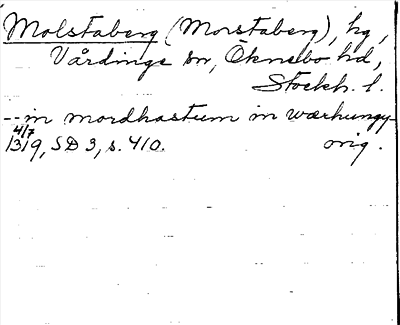 Molstaberg (Morstaberg), hg,
Vårdinge sn, Öknebo hd,
Stockh. l.
-- in mordhastum in wærhungy
4/7
1319, SD 3, s. 410. orig.